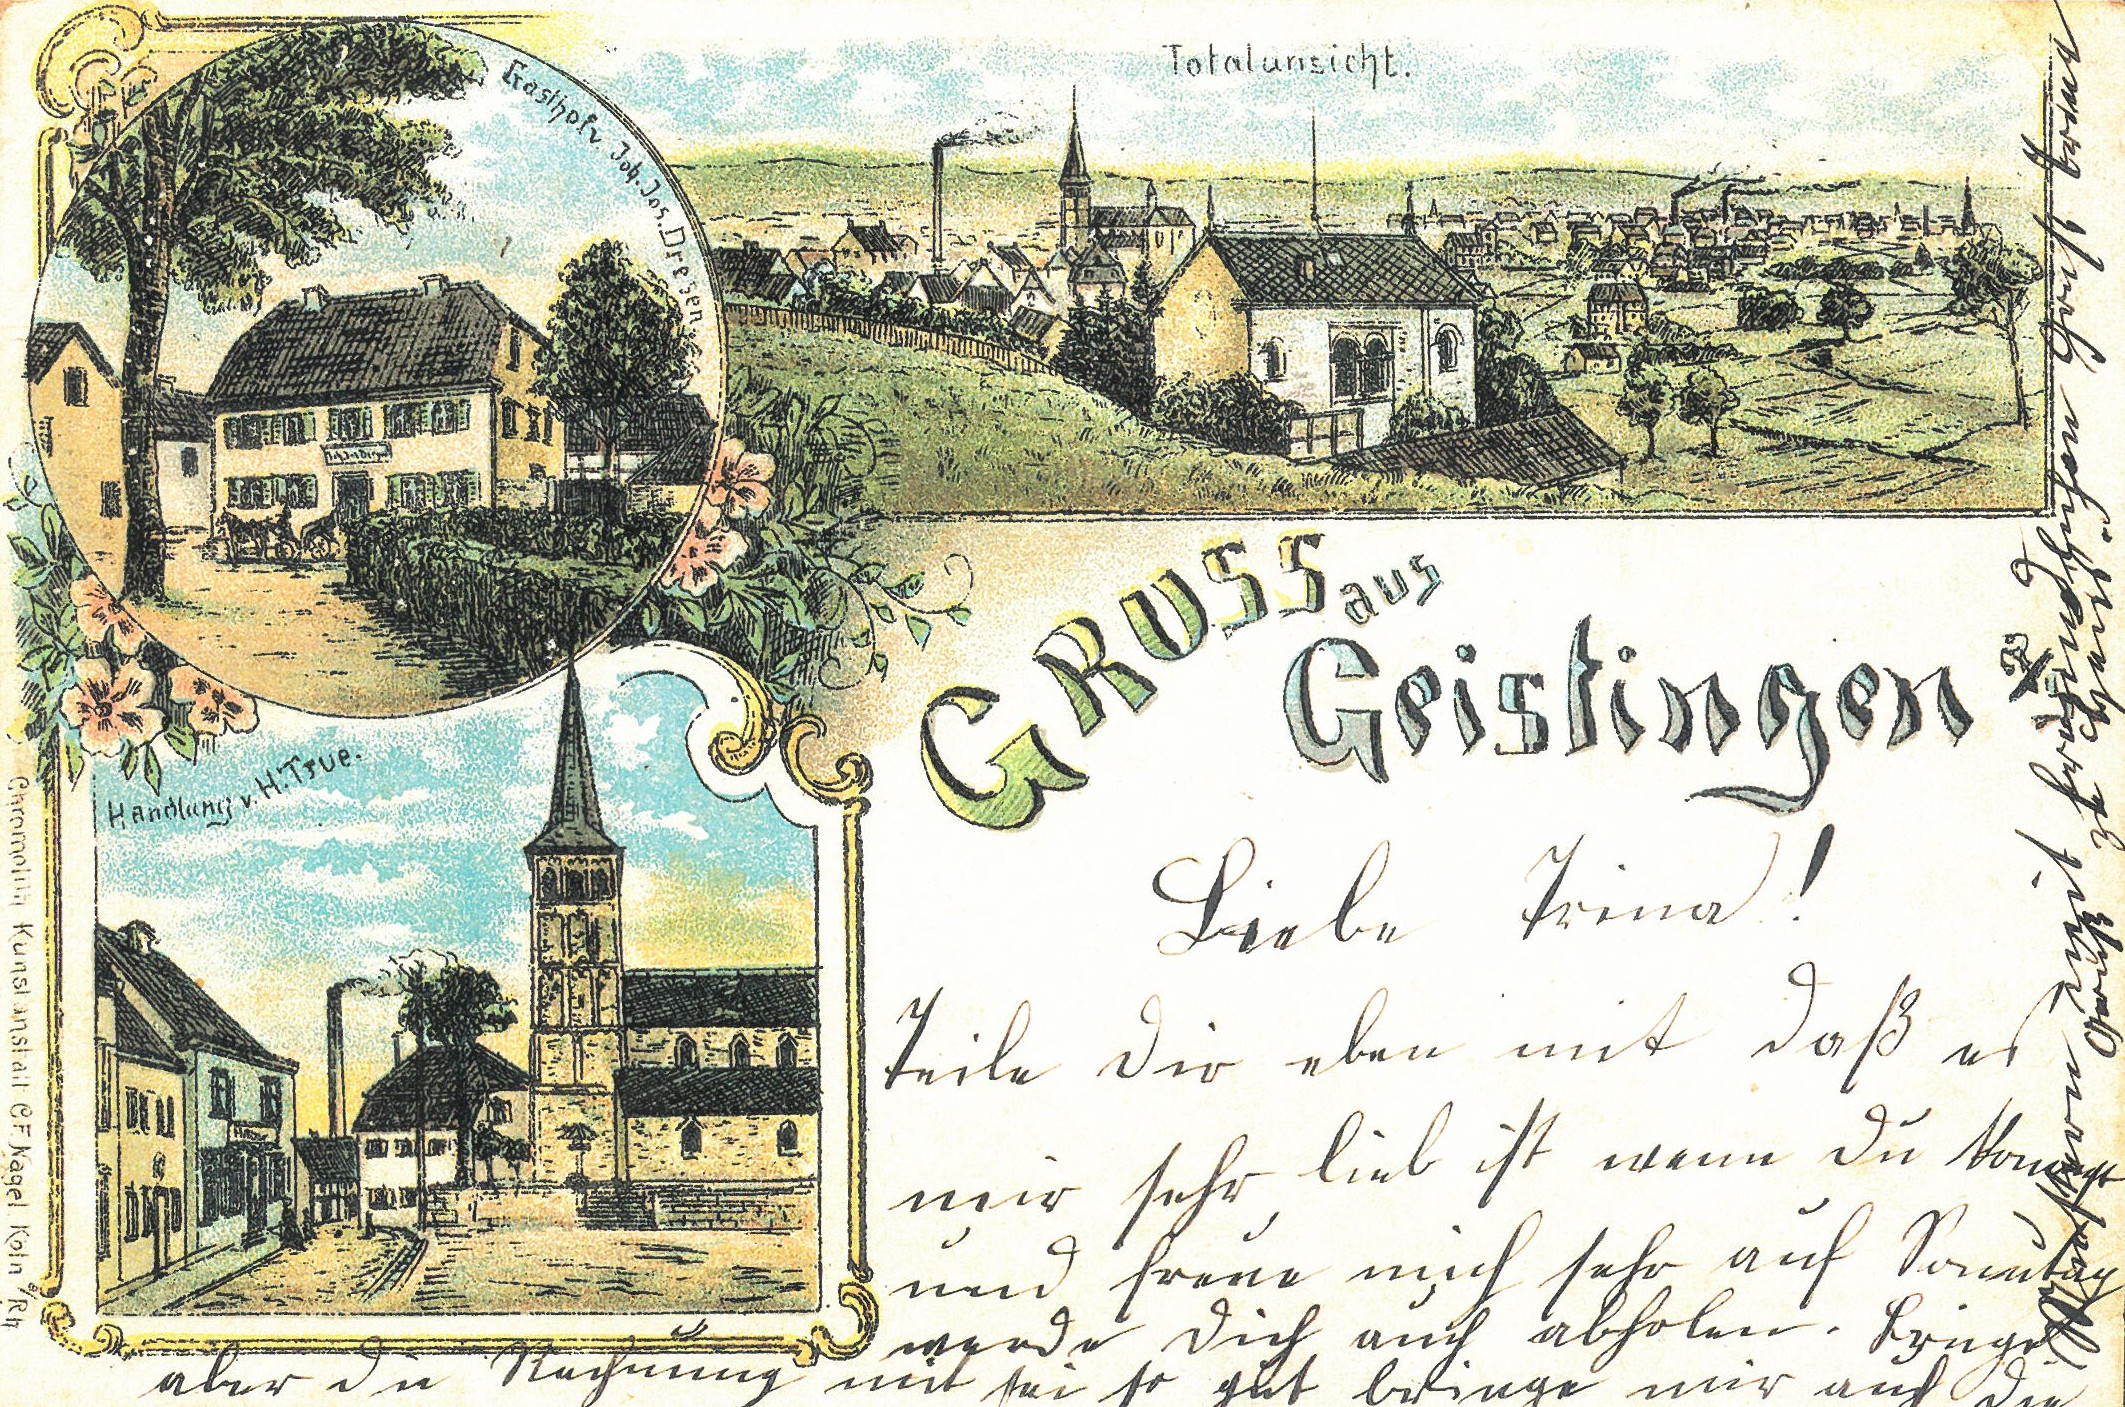 Totalansicht.
Gasthof v. Joh. Jos. Dresen.
GRUSS
aus
Geistingen
Handlung v. H. True.
Liebe Trina!
Teile Dir eben mit daß es
mir sehr lieb ist wenn Du kommst
und freue mich sehr auf Sonntag
werde Dich auch abholen. Bringe
aber die Rechnung mit sei so gut bringe mir auch die
mit
Gruß
Chromolith. Kunstanstalt C. F. Nagel Köln a/Rh.